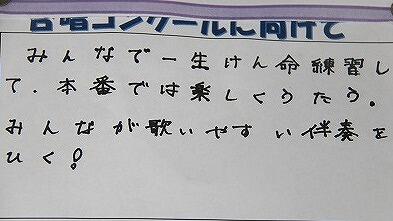 合唱コンクールに向けて
みんなで一生けん命練習し
て、本番では楽しくうたう。
みんなが歌いやすい伴奏を
ひく!